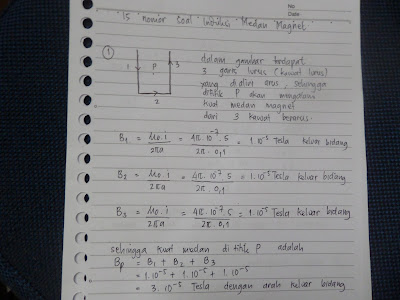 No
Date
15 nomor soal Induksi Medan Magnet
①
1 P 3
2
dalam gambar terdapat
3 garis lurus (kawat lurus)
yang dialiri arus, sehingga
dititik P akan mengalami
kuat medan magnet
dari 3 kawat berarus.
B₁ = μo.i / 2πa = 4π.10⁻⁷.5 / 2π.0,1 = 1.10⁻⁵ Tesla keluar bidang
B₂ = μo.i / 2πa = 4π.10⁻⁷.5 / 2π.0,1 = 1.10⁻⁵ Tesla keluar bidang
B₃ = μo.i / 2πa = 4π.10⁻⁷.5 / 2π.0,1 = 1.10⁻⁵ Tesla keluar bidang
sehingga kuat medan di titik P adalah
Bp = B₁ + B₂ + B₃
= 1.10⁻⁵ + 1.10⁻⁵ + 1.10⁻⁵
= 3.10⁻⁵ Tesla dengan arah keluar bidang